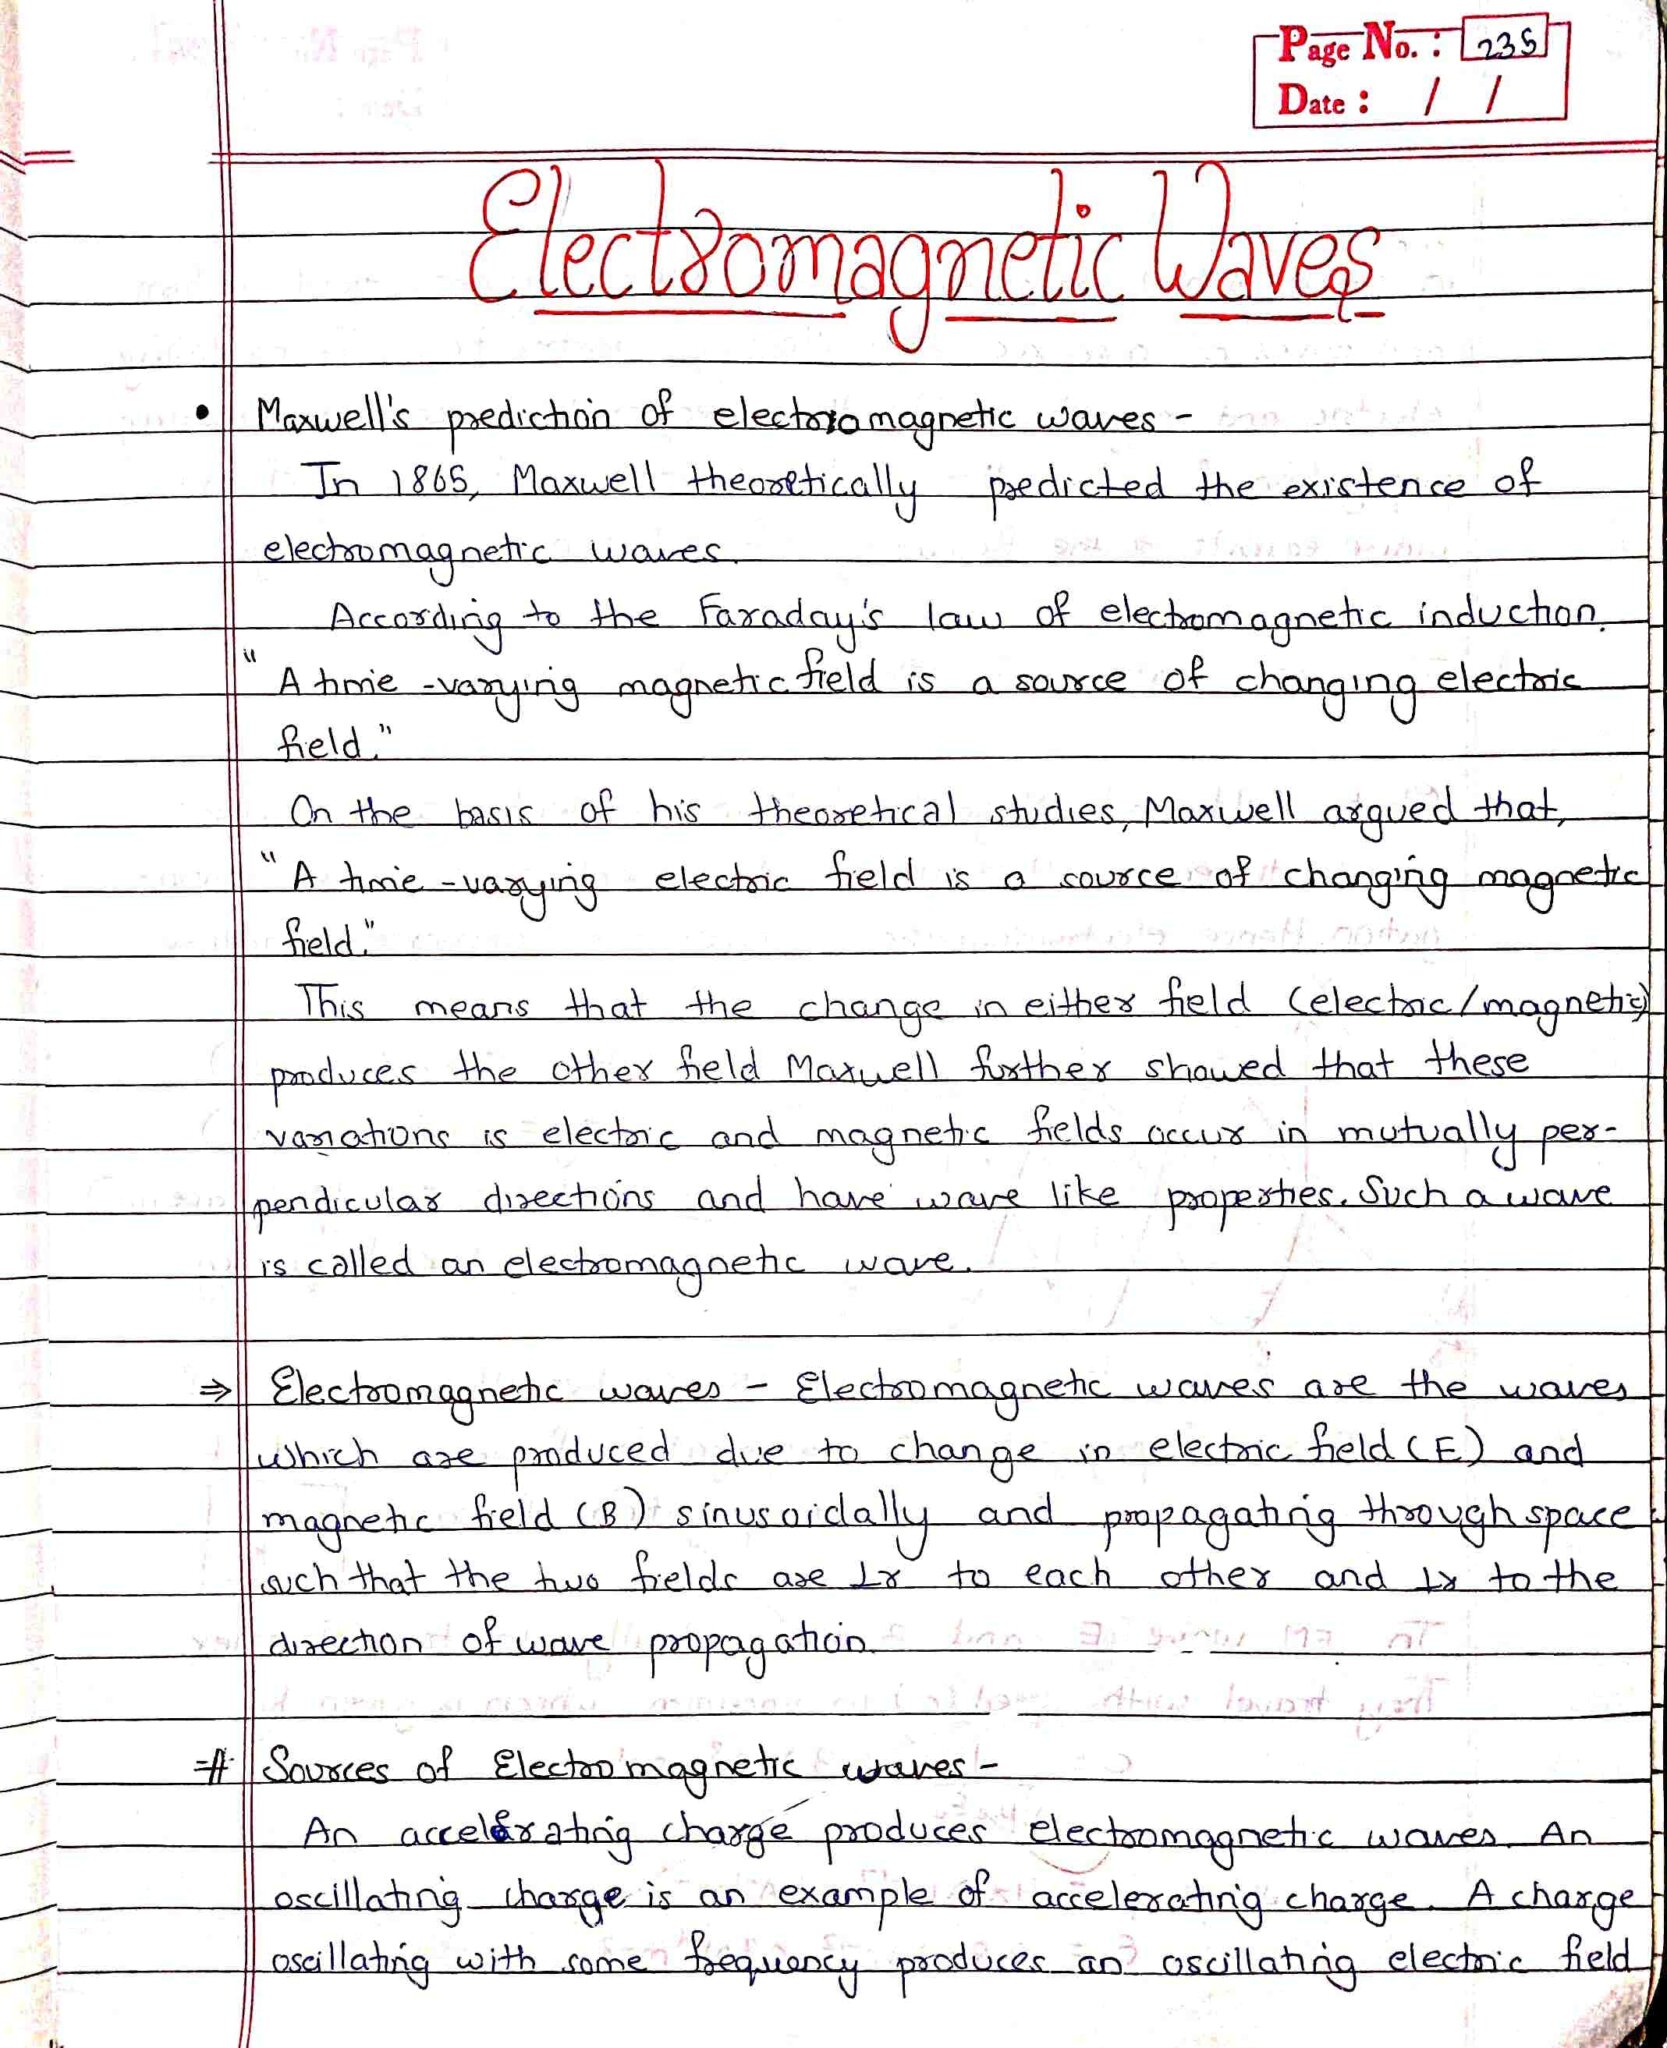 Page No. : 235
Date : / /
Electromagnetic Waves
• Maxwell's prediction of electromagnetic waves -
In 1865, Maxwell theoretically predicted the existence of
electromagnetic waves.
According to the Faraday's law of electromagnetic induction,
"A time-varying magnetic field is a source of changing electric
field."
On the basis of his theoretical studies, Maxwell argued that,
"A time-varying electric field is a source of changing magnetic
field."
This means that the change in either field (electric/magnetic)
produces the other field Maxwell further showed that these
variations is electric and magnetic fields occur in mutually per-
pendicular directions and have wave like properties. Such a wave
is called an electromagnetic wave.
⇒ Electromagnetic waves - Electromagnetic waves are the waves
which are produced due to change in electric field (E) and
magnetic field (B) sinusoidally and propagating through space
such that the two fields are ⊥r to each other and ⊥r to the
direction of wave propagation.
# Sources of Electromagnetic waves -
An accelerating charge produces electromagnetic waves. An
oscillating charge is an example of accelerating charge. A charge
oscillating with some frequency produces an oscillating electric field